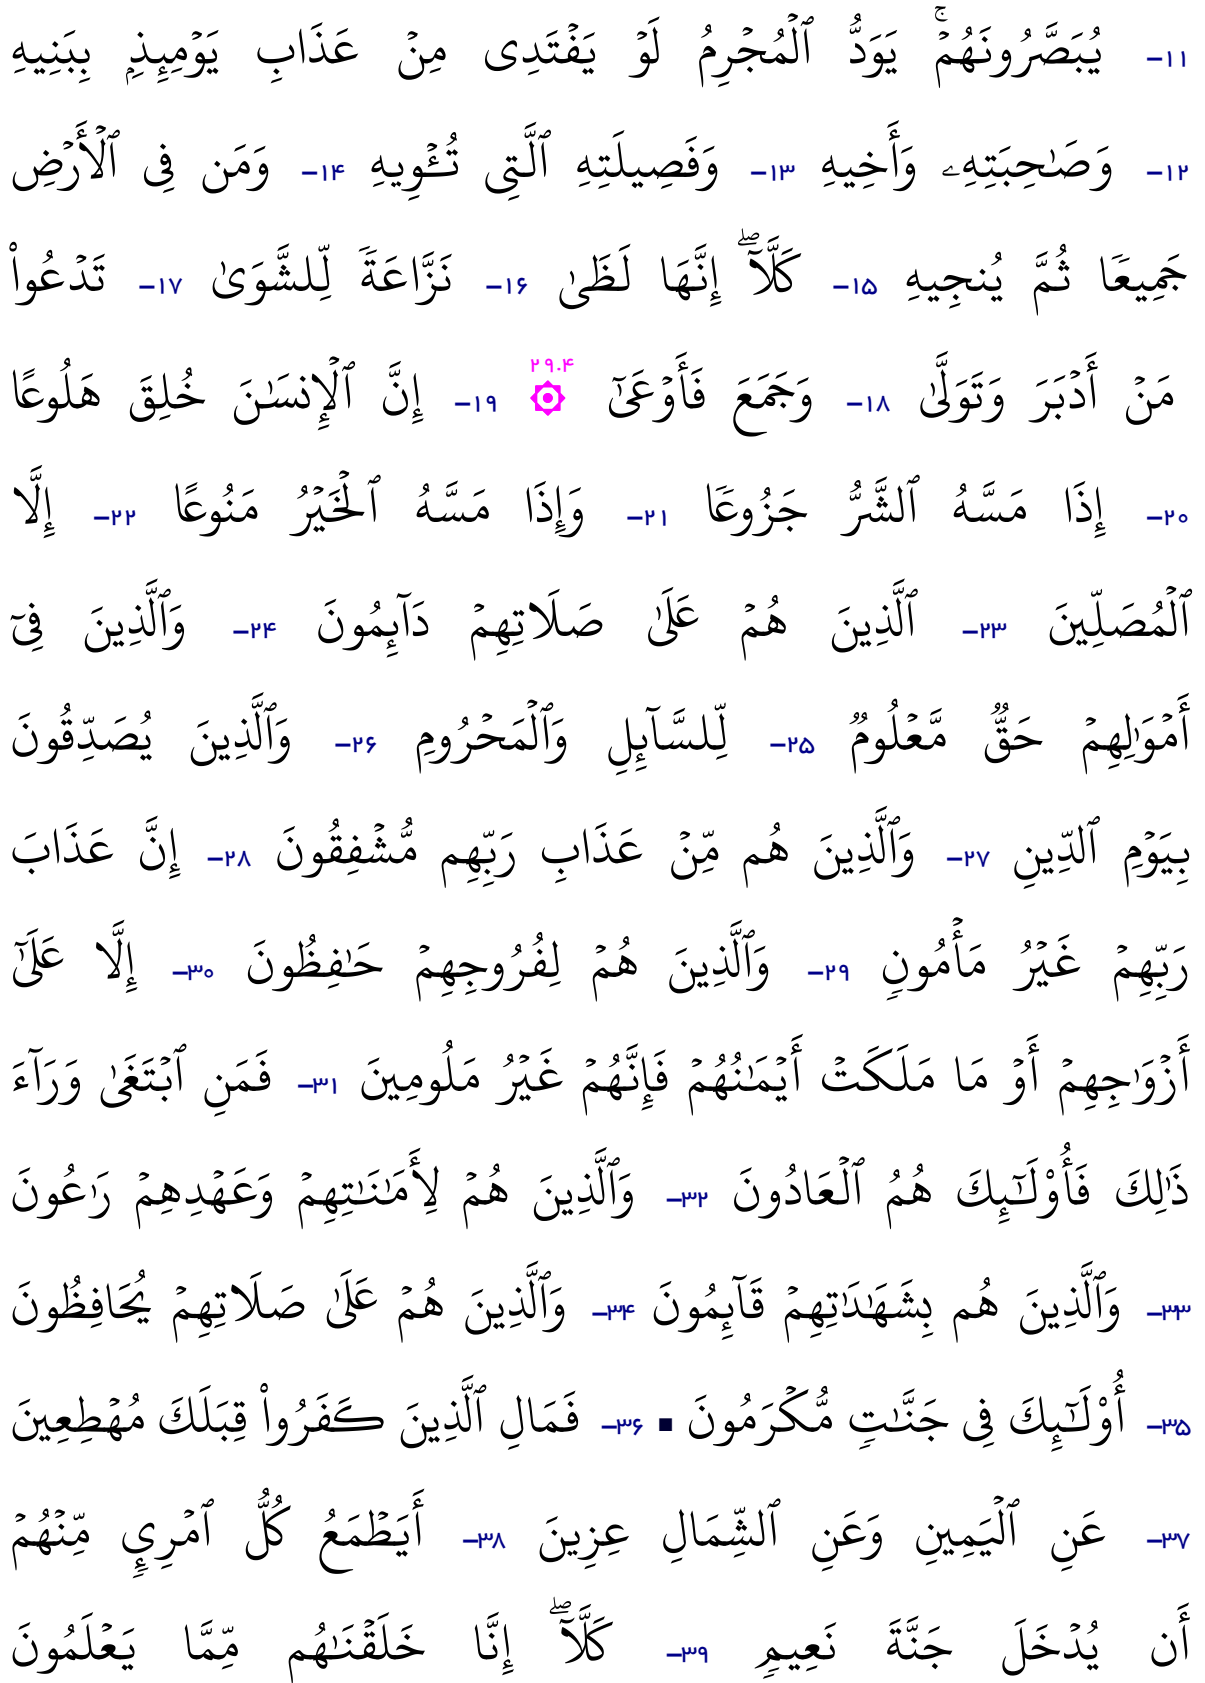 ۱۱- يُبَصَّرُونَهُمۡۚ يَوَدُّ ٱلۡمُجۡرِمُ لَوۡ يَفۡتَدِى مِنۡ عَذَابِ يَوۡمِئِذِۭ بِبَنِيهِ
۱۲- وَصَـٰحِبَتِهِۦ وَأَخِيهِ ۱۳- وَفَصِيلَتِهِ ٱلَّتِى تُـۡٔوِيهِ ۱۴- وَمَن فِى ٱلۡأَرۡضِ
جَمِيعًا ثُمَّ يُنجِيهِ ۱۵- كَلَّآۖ إِنَّهَا لَظَىٰ ۱۶- نَزَّاعَةً لِّلشَّوَىٰ ۱۷- تَدۡعُواْ
مَنۡ أَدۡبَرَ وَتَوَلَّىٰ ۱۸- وَجَمَعَ فَأَوۡعَىٰٓ ۞ ۲۹.۴ ۱۹- إِنَّ ٱلۡإِنسَـٰنَ خُلِقَ هَلُوعًا
۲۰- إِذَا مَسَّهُ ٱلشَّرُّ جَزُوعًا ۲۱- وَإِذَا مَسَّهُ ٱلۡخَيۡرُ مَنُوعًا ۲۲- إِلَّا
ٱلۡمُصَلِّينَ ۲۳- ٱلَّذِينَ هُمۡ عَلَىٰ صَلَاتِهِمۡ دَآئِمُونَ ۲۴- وَٱلَّذِينَ فِىٓ
أَمۡوَٲلِهِمۡ حَقٌّ مَّعۡلُومٌ ۲۵- لِّلسَّآئِلِ وَٱلۡمَحۡرُومِ ۲۶- وَٱلَّذِينَ يُصَدِّقُونَ
بِيَوۡمِ ٱلدِّينِ ۲۷- وَٱلَّذِينَ هُم مِّنۡ عَذَابِ رَبِّهِم مُّشۡفِقُونَ ۲۸- إِنَّ عَذَابَ
رَبِّهِمۡ غَيۡرُ مَأۡمُونٍ ۲۹- وَٱلَّذِينَ هُمۡ لِفُرُوجِهِمۡ حَـٰفِظُونَ ۳۰- إِلَّا عَلَىٰٓ
أَزۡوَٲجِهِمۡ أَوۡ مَا مَلَكَتۡ أَيۡمَـٰنُهُمۡ فَإِنَّهُمۡ غَيۡرُ مَلُومِينَ ۳۱- فَمَنِ ٱبۡتَغَىٰ وَرَآءَ
ذَٲلِكَ فَأُوْلَـٰٓئِكَ هُمُ ٱلۡعَادُونَ ۳۲- وَٱلَّذِينَ هُمۡ لِأَمَـٰنَـٰتِهِمۡ وَعَهۡدِهِمۡ رَٲعُونَ
۳۳- وَٱلَّذِينَ هُم بِشَهَـٰدَٲتِهِمۡ قَآئِمُونَ ۳۴- وَٱلَّذِينَ هُمۡ عَلَىٰ صَلَاتِهِمۡ يُحَافِظُونَ
۳۵- أُوْلَـٰٓئِكَ فِى جَنَّـٰتٍ مُّكۡرَمُونَ ■ ۳۶- فَمَالِ ٱلَّذِينَ كَفَرُواْ قِبَلَكَ مُهۡطِعِينَ
۳۷- عَنِ ٱلۡيَمِينِ وَعَنِ ٱلشِّمَالِ عِزِينَ ۳۸- أَيَطۡمَعُ كُلُّ ٱمۡرِىٍٕ مِّنۡهُمۡ
أَن يُدۡخَلَ جَنَّةَ نَعِيمٍ ۳۹- كَلَّآۖ إِنَّا خَلَقۡنَـٰهُم مِّمَّا يَعۡلَمُونَ